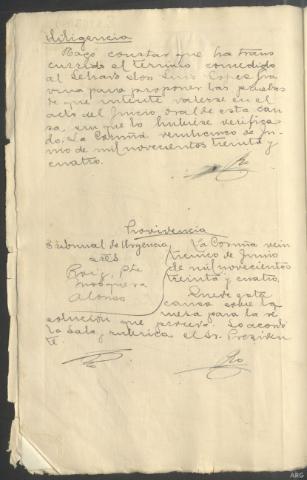 Diligencia
Hago constar que ha trans
currido el término concedido
al Letrado Don Luis Lopez Gra
viña para proponer las pruebas
de que intente valerse en el
acto del Juicio oral de esta cau
sa, sin que lo hubiese verifica
do. La Coruña veinticinco de Ju
nio de mil novecientos treinta y
cuatro.
Providencia
Tribunal de Urgencia
Sres
Roig, Pte
Mosquera
Alonso
La Coruña vein
ticinco de Junio
de mil novecientos
treinta y cuatro.
Quede esta
causa sobre la
mesa para la re
solución que proceda. Lo acordó
la Sala, rubrica el Sr. Presiden
te.
ARG